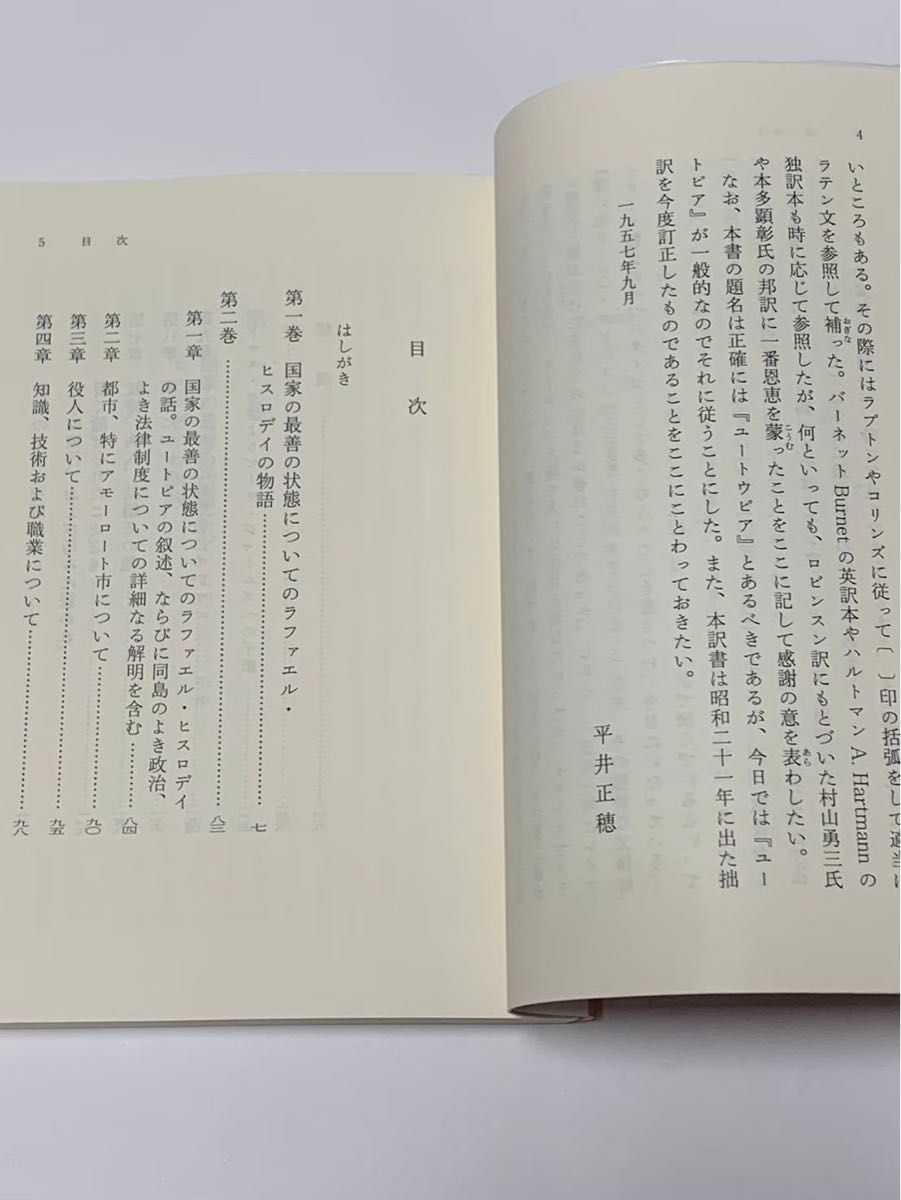 4
いところもある。その際にはラプトンやコリンズに従って〔 〕印の括弧をして適当に
ラテン文を参照して補った。バーネット Burnet の英訳本やハルトマン A. Hartmann の
独訳本も時に応じて参照したが、何といっても、ロビンスン訳にもとづいた村山勇三氏
や本多顕彰氏の邦訳に一番恩恵を蒙ったことをここに記して感謝の意を表わしたい。
なお、本書の題名は正確には『ユートウピア』とあるべきであるが、今日では『ユー
トピア』が一般的なのでそれに従うことにした。また、本訳書は昭和二十一年に出た拙
訳を今度訂正したものであることをここにことわっておきたい。
一九五七年九月
平井正穂
5 目次
目次
はしがき
第一巻 国家の最善の状態についてのラファエル・
ヒスロデイの物語……………七
第二巻……………八三
第一章 国家の最善の状態についてのラファエル・ヒスロデイ
の話。ユートピアの叙述、ならびに同島のよき政治、
よき法律制度についての詳細なる解明を含む……………八四
第二章 都市、特にアモーロート市について……………九〇
第三章 役人について……………九五
第四章 知識、技術および職業について……………九八